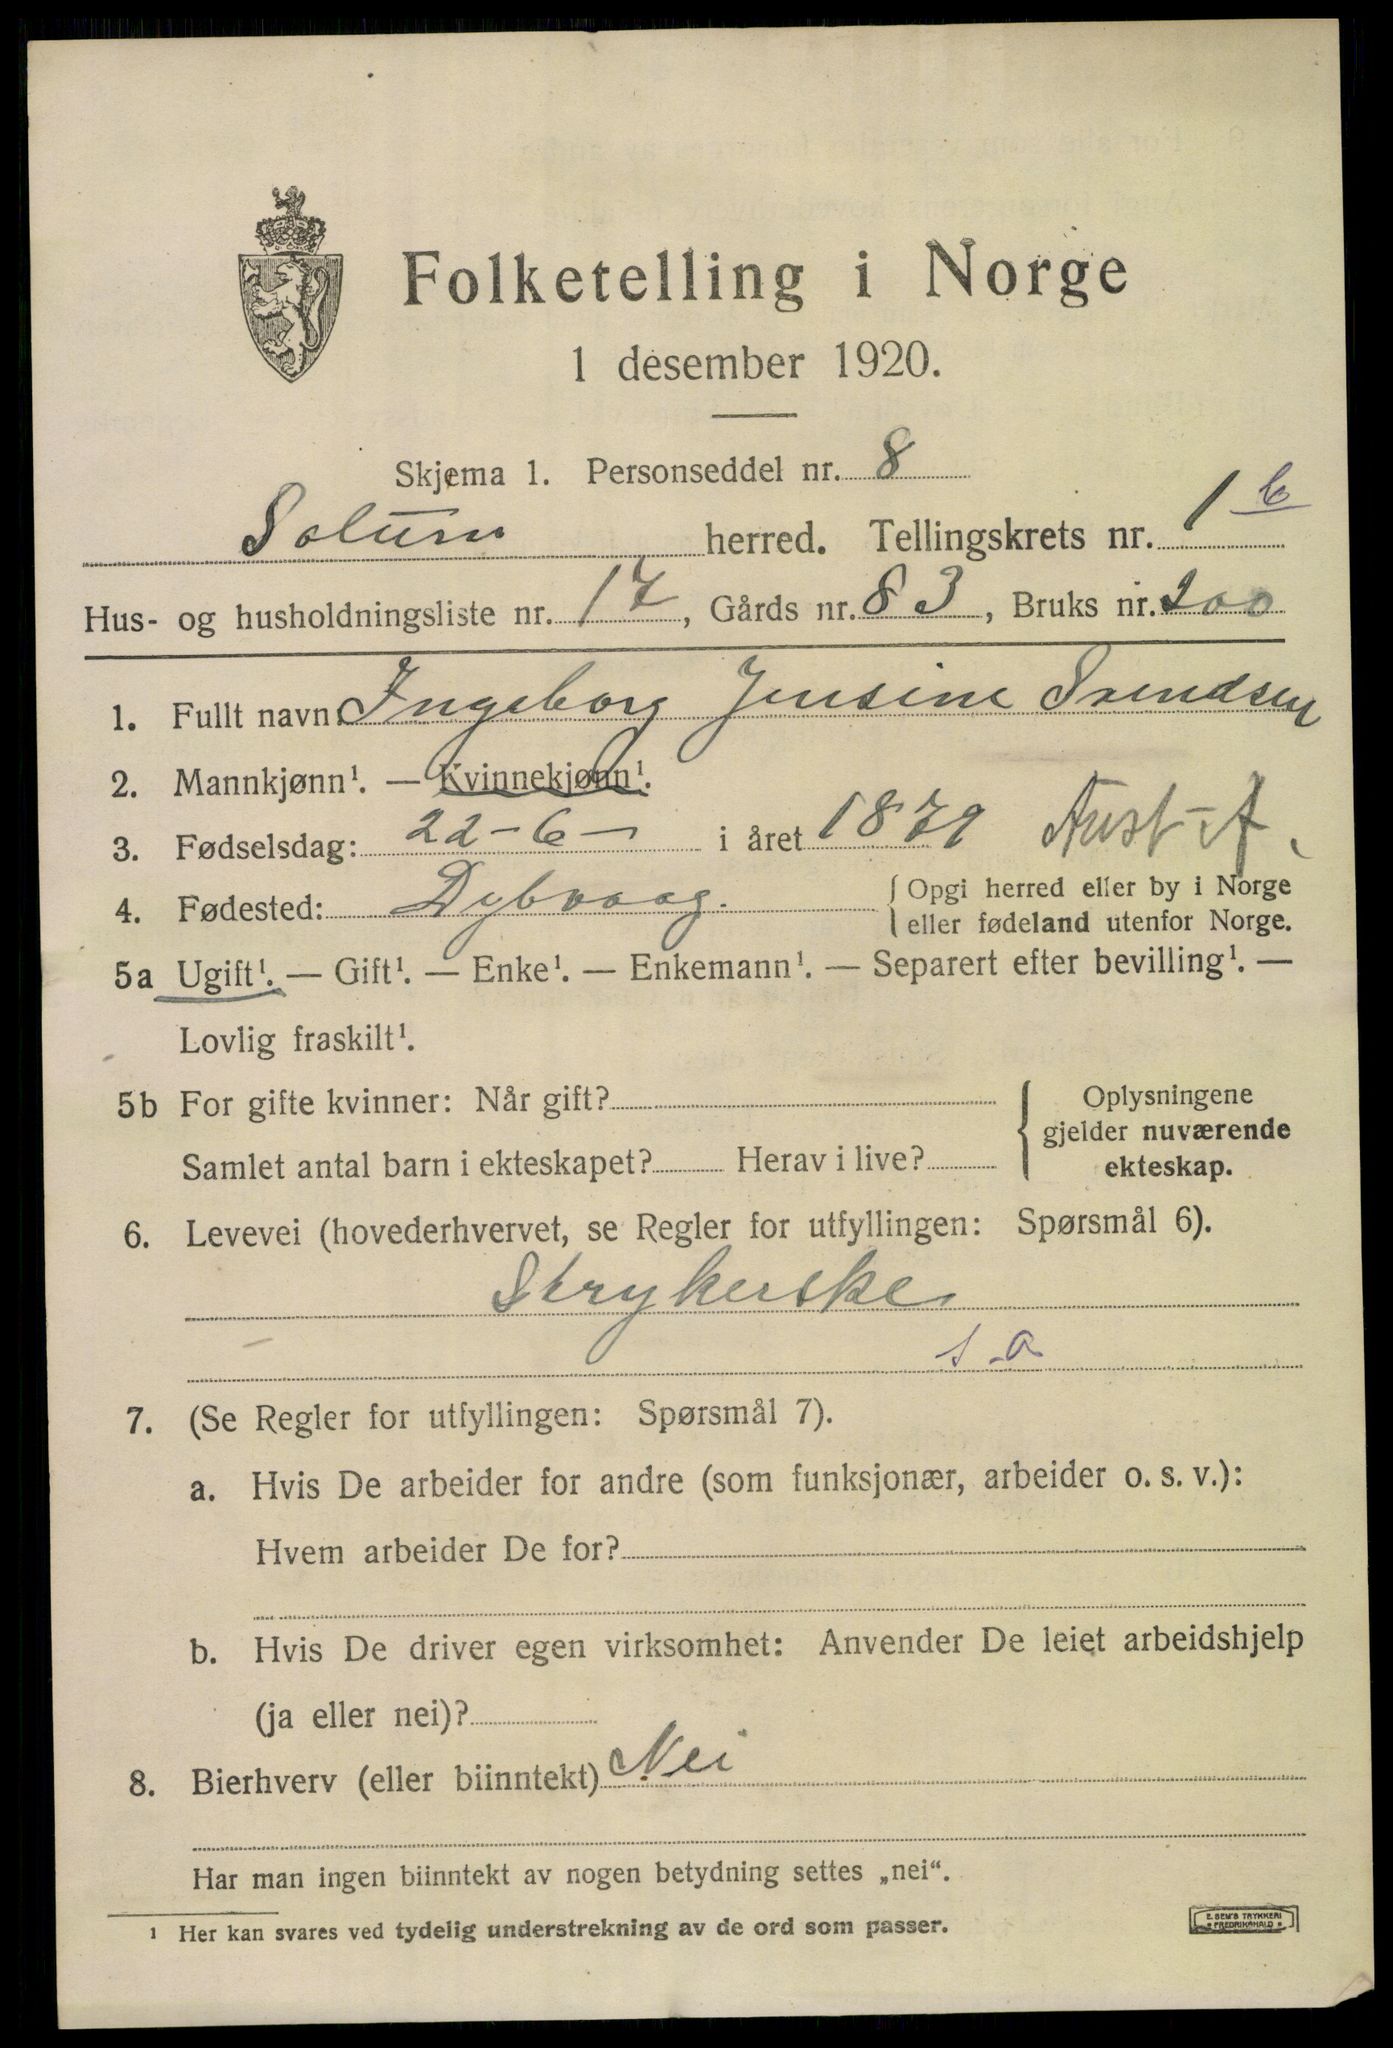 Folketelling i Norge
1 desember 1920.
Skjema 1. Personseddel nr. 8
Solum herred. Tellingskrets nr. 1 b
Hus- og husholdningsliste nr. 17, Gårds nr. 83, Bruks nr. 200
1. Fullt navn: Ingeborg Jensine Svendsen
2. Mannkjønn¹. — Kvinnekjønn¹.
3. Fødselsdag: 22-6- i året 1879 Aust-A.
4. Fødested: Dybvaag. { Opgi herred eller by i Norge
eller fødeland utenfor Norge.
5a Ugift¹. — Gift¹. — Enke¹. — Enkemann¹. — Separert efter bevilling¹. —
Lovlig fraskilt¹.
5b For gifte kvinner: Når gift? { Oplysningene
gjelder nuværende
Samlet antal barn i ekteskapet? Herav i live? ekteskap.
6. Levevei (hovederhvervet, se Regler for utfyllingen: Spørsmål 6).
Strykerske
s a
7. (Se Regler for utfyllingen: Spørsmål 7).
a. Hvis De arbeider for andre (som funksjonær, arbeider o. s. v.):
Hvem arbeider De for?
b. Hvis De driver egen virksomhet: Anvender De leiet arbeidshjelp
(ja eller nei)?
8. Bierhverv (eller biinntekt) Nei
Har man ingen biinntekt av nogen betydning settes „nei“.
¹ Her kan svares ved tydelig understrekning av de ord som passer.
E. SEM'S TRYKKERI
FREDRIKSHALD